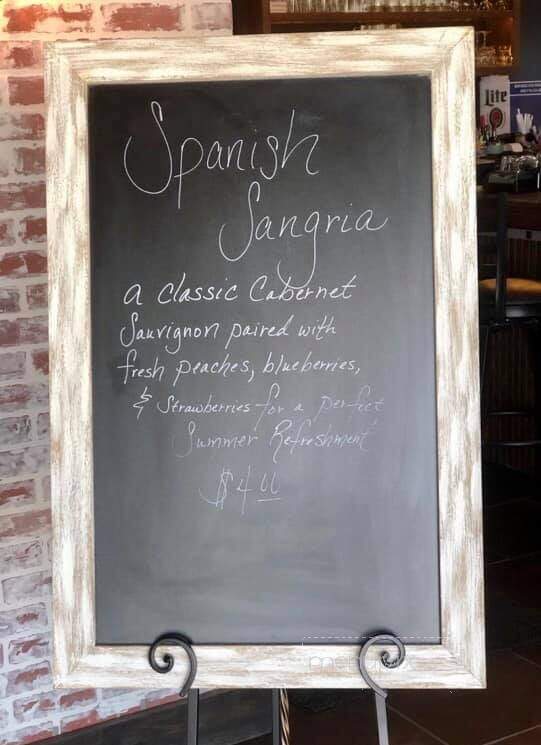 Spanish
Sangria
a classic Cabernet
Sauvignon paired with
fresh peaches, blueberries,
& Strawberries for a perfect
Summer Refreshment
$4.00
Lite